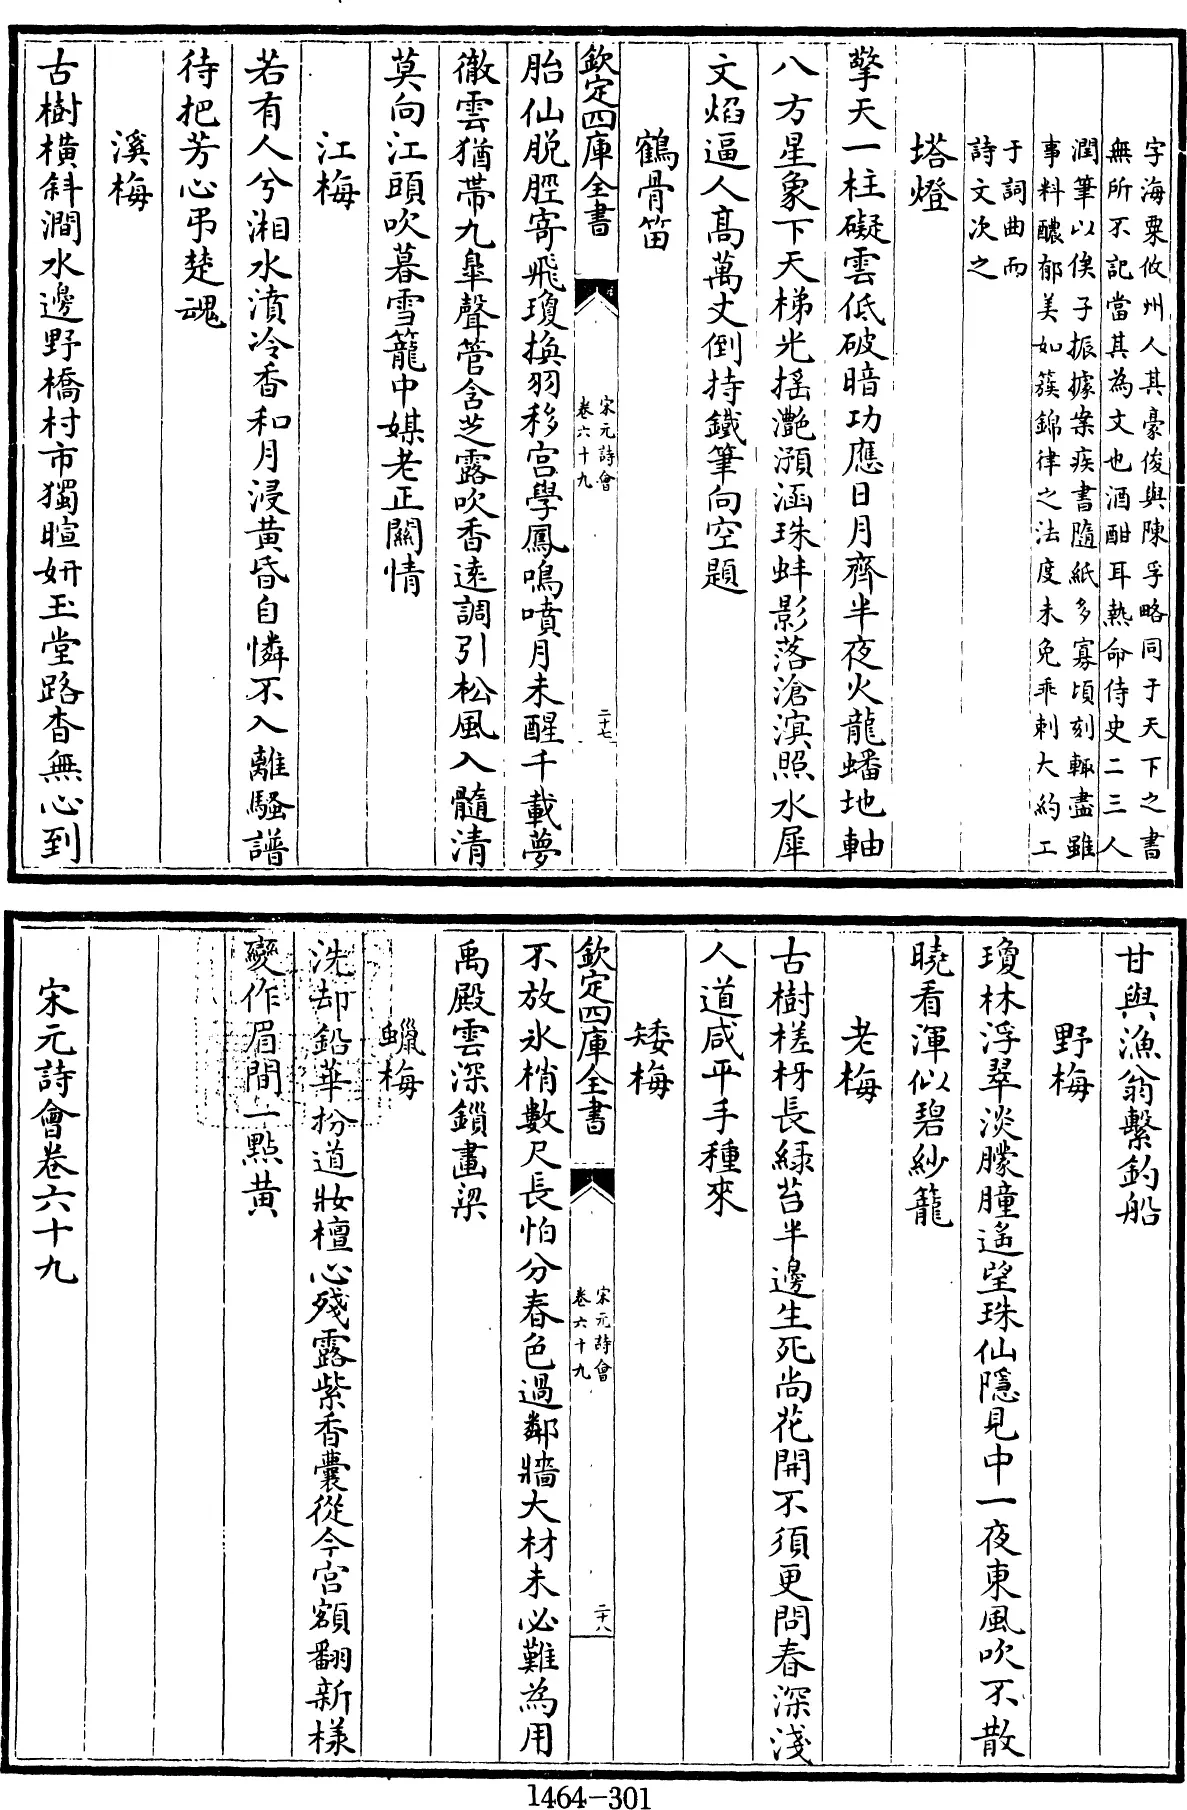 字海粟攸州人其豪俊與陳孚略同于天下之書
無所不記當其為文也酒酣耳熱命侍史二三人
潤筆以俟子振據案疾書隨紙多寡頃刻輒盡雖
事料醲郁美如簇錦律之法度未免乖剌大約工
于詞曲而
詩文次之
塔燈
擎天一柱礙雲低破暗功應日月齊半夜火龍蟠地軸
八方星象下天梯光搖灔澦涵珠蚌影落滄溟照水犀
文焰逼人高萬丈倒持鐵筆向空題
鶴骨笛
欽定四庫全書
宋元詩會
卷六十九
二十七
胎仙脫脛寄飛瓊換羽移宮學鳳鳴噴月未醒千載夢
徹雲猶帶九臯聲管含芝露吹香遠調引松風入髓清
莫向江頭吹暮雪籠中媒老正關情
江梅
若有人兮湘水濆冷香和月浸黃昏自憐不入離騷譜
待把芳心弔楚魂
溪梅
古樹橫斜澗水邊野橋村市獨暄妍玉堂路杳無心到
甘與漁翁繫釣船
野梅
瓊林浮翠淡朦朣遙望珠仙隱見中一夜東風吹不散
曉看渾似碧紗籠
老梅
古樹槎枒長綠苔半邊生死尚花開不須更問春深淺
人道咸平手種來
矮梅
欽定四庫全書
宋元詩會
卷六十九
二十八
不放氷梢數尺長怕分春色過鄰牆大材未必難為用
禹殿雲深鎖畫梁
蠟梅
洗却鉛華扮道妝檀心殘露紫香囊從今宮額翻新樣
變作眉間一點黃
宋元詩會卷六十九
1464-301